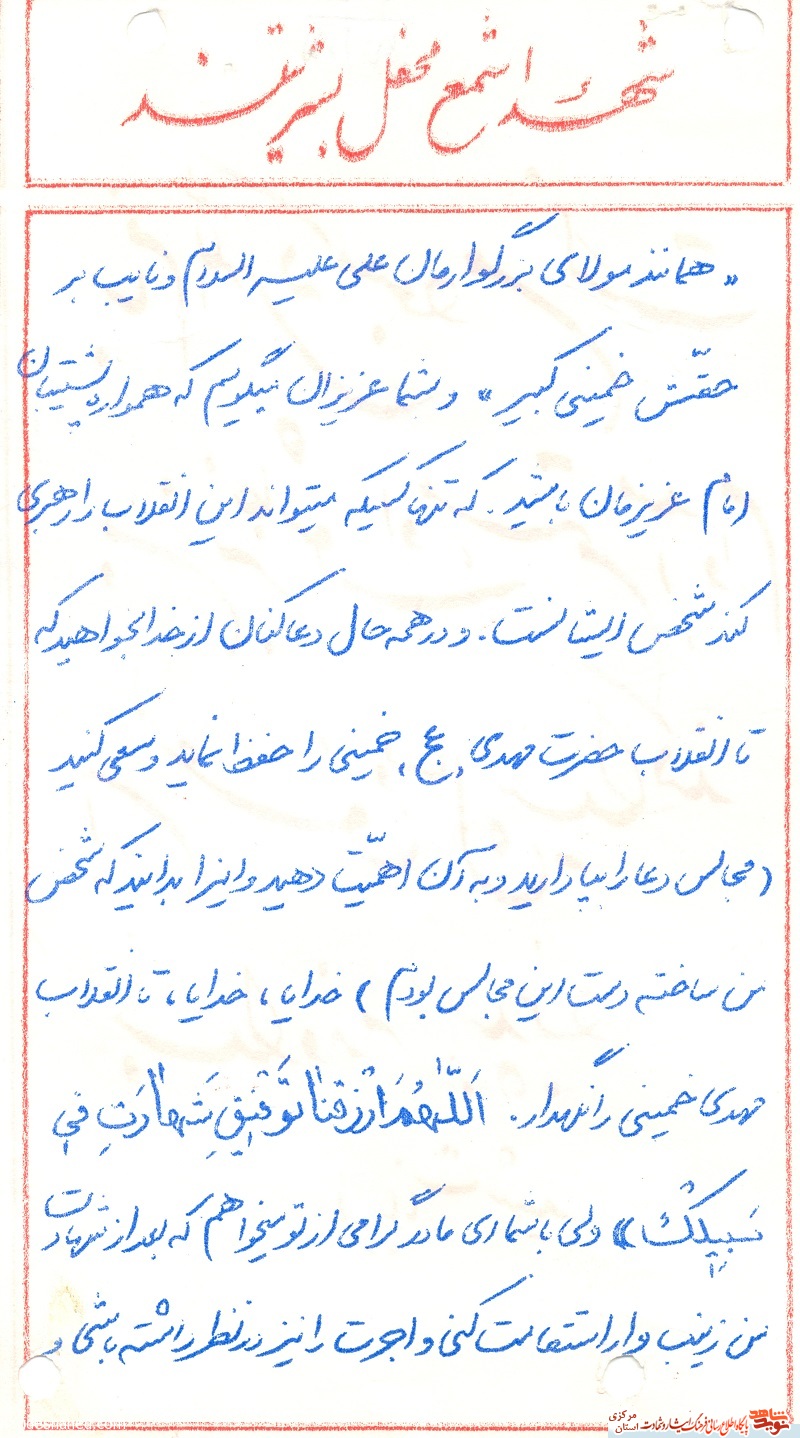 شهدا شمع محفل بشریتند
« همانند مولای بزرگوارمان علی علیه السلام و نایب بر
حقّش خمینی کبیر » و بشما عزیزان میگویم که همواره پشتیبان
امام عزیزمان باشید. که تنها کسیکه میتواند این انقلاب را رهبری
کند شخص ایشانست. و در همه حال دعا کنان از خدا بخواهید که
تا انقلاب حضرت مهدی ‚ عج ‚ خمینی را حفظ نماید و سعی کنید
( مجالس دعا را بپا دارید و به آن اهمّیت دهید و اینرا بدانید که شخص
من ساخته دست این مجالس بودم ) خدایا، خدایا، تا انقلاب
مهدی خمینی را نگهدار. اَللّهُمَ ارْزقنا تَوَفیقِ شَهادَتِ فی
سَبیلِکْ » ولی با شمای مادر گرامی از تو میخواهم که بعد از شهادت
من زینب وار استقامت کنی و اجرت را نیز در نظر داشته باشی و
نوید شاهد
پایگاه اطلاع رسانی فرهنگ ایثار و شهادت استان مرکزی